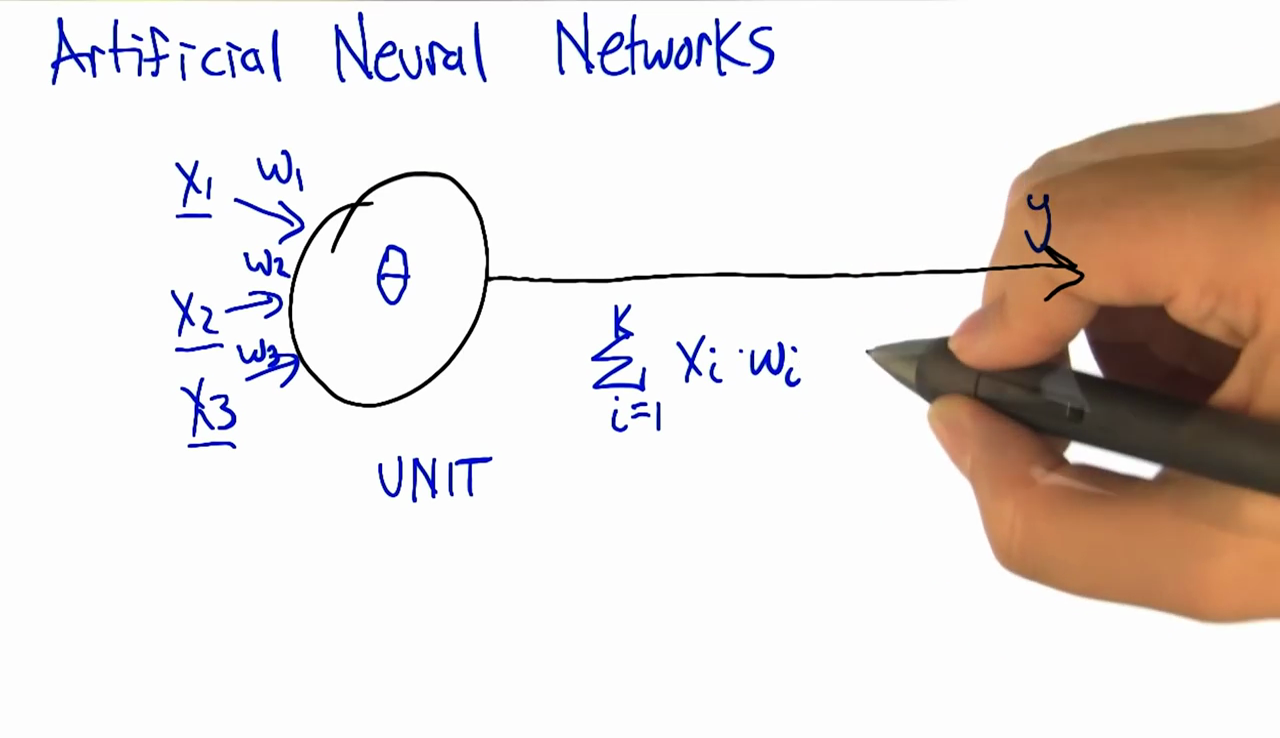 Artificial Neural Networks
X1 w1
w2
X2
w3
X3
θ
y
K
∑ Xi · wi
i=1
UNIT